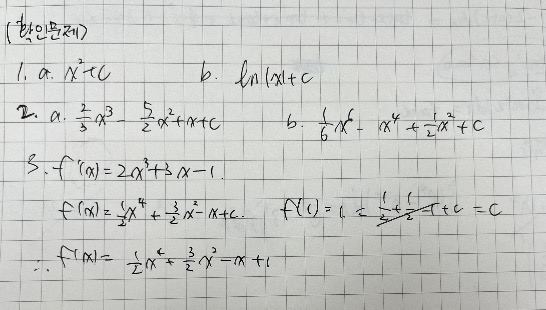 (확인문제)
1. a. x²+c b. ln|x|+c
2. a. 2/3 x³ - 5/2 x²+x+c b. 1/6 x⁶ - x⁴ + 1/2 x² + c
3. f'(x) = 2x³+3x-1.
f(x) = 1/2 x⁴ + 3/2 x² - x+c. f(1) = 1 = 1/2 + 1/2 - 1 + c = c
∴ f(x) = 1/2 x⁴ + 3/2 x² - x + 1